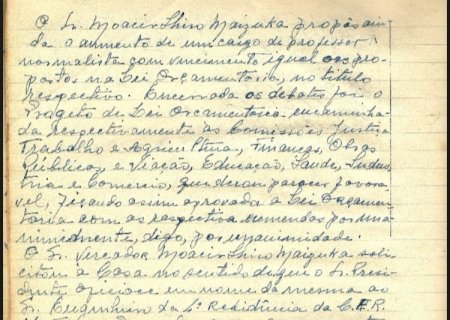 O Sr. Moacir Shiro Maizuka propôs ain-
da o aumento de um cargo de professor
normalista com vencimento igual aos pro-
postos na Lei Orçamentária, no titulo
respectivo. Encerrada os debates foi o
Projeto de Lei Orcamentária encaminha-
da respectivamente às Comissões Justiça
Trabalho e Agricultura, Finanças, Obras
Públicas e Viação, Educação, Saude, Indus-
tria e Comercio, que deram parecer favora-
vel, ficando assim aprovada a Lei Orçamen-
tária com as respectiva emendas por una-
nimidmente, digo, por unanimidade.
O Sr. Vereador Moacir Shiro Maizuka soli-
citou à Casa no sentido de que o Sr. Presi-
dente oficiasse em nome da mesma ao
Sr. Engenheiro da 4ª Residência da C.E.R.